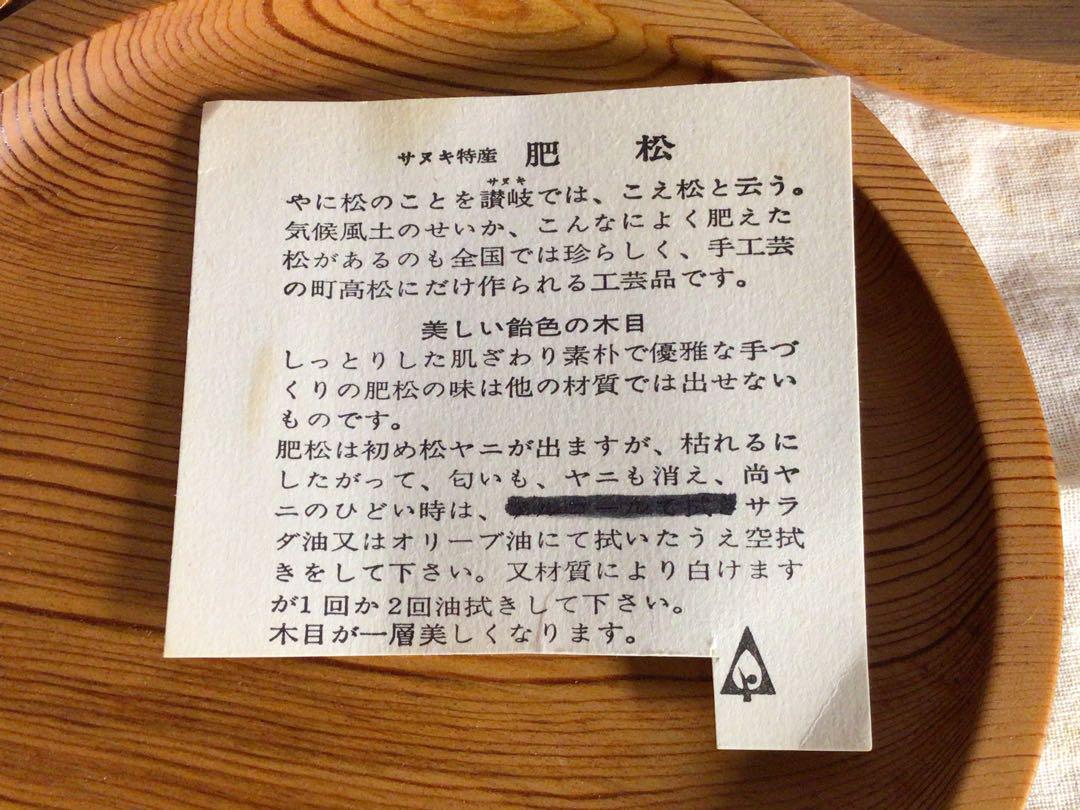 サヌキ特産 肥 松
サヌキ
やに松のことを讃岐では、こえ松と云う。
気候風土のせいか、こんなによく肥えた
松があるのも全国では珍らしく、手工芸
の町高松にだけ作られる工芸品です。
美しい飴色の木目
しっとりした肌ざわり素朴で優雅な手づ
くりの肥松の味は他の材質では出せない
ものです。
肥松は初め松ヤニが出ますが、枯れるに
したがって、匂いも、ヤニも消え、尚ヤ
ニのひどい時は、サラ
ダ油又はオリーブ油にて拭いたうえ空拭
きをして下さい。又材質により白けます
が1回か2回油拭きして下さい。
木目が一層美しくなります。